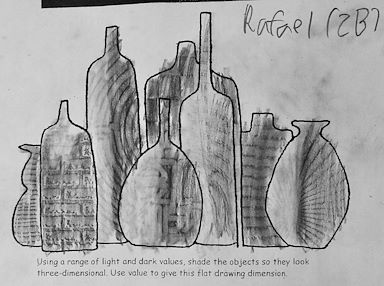 Rafael (2B)
Using a range of light and dark values, shade the objects so they look
three-dimensional. Use value to give this flat drawing dimension.